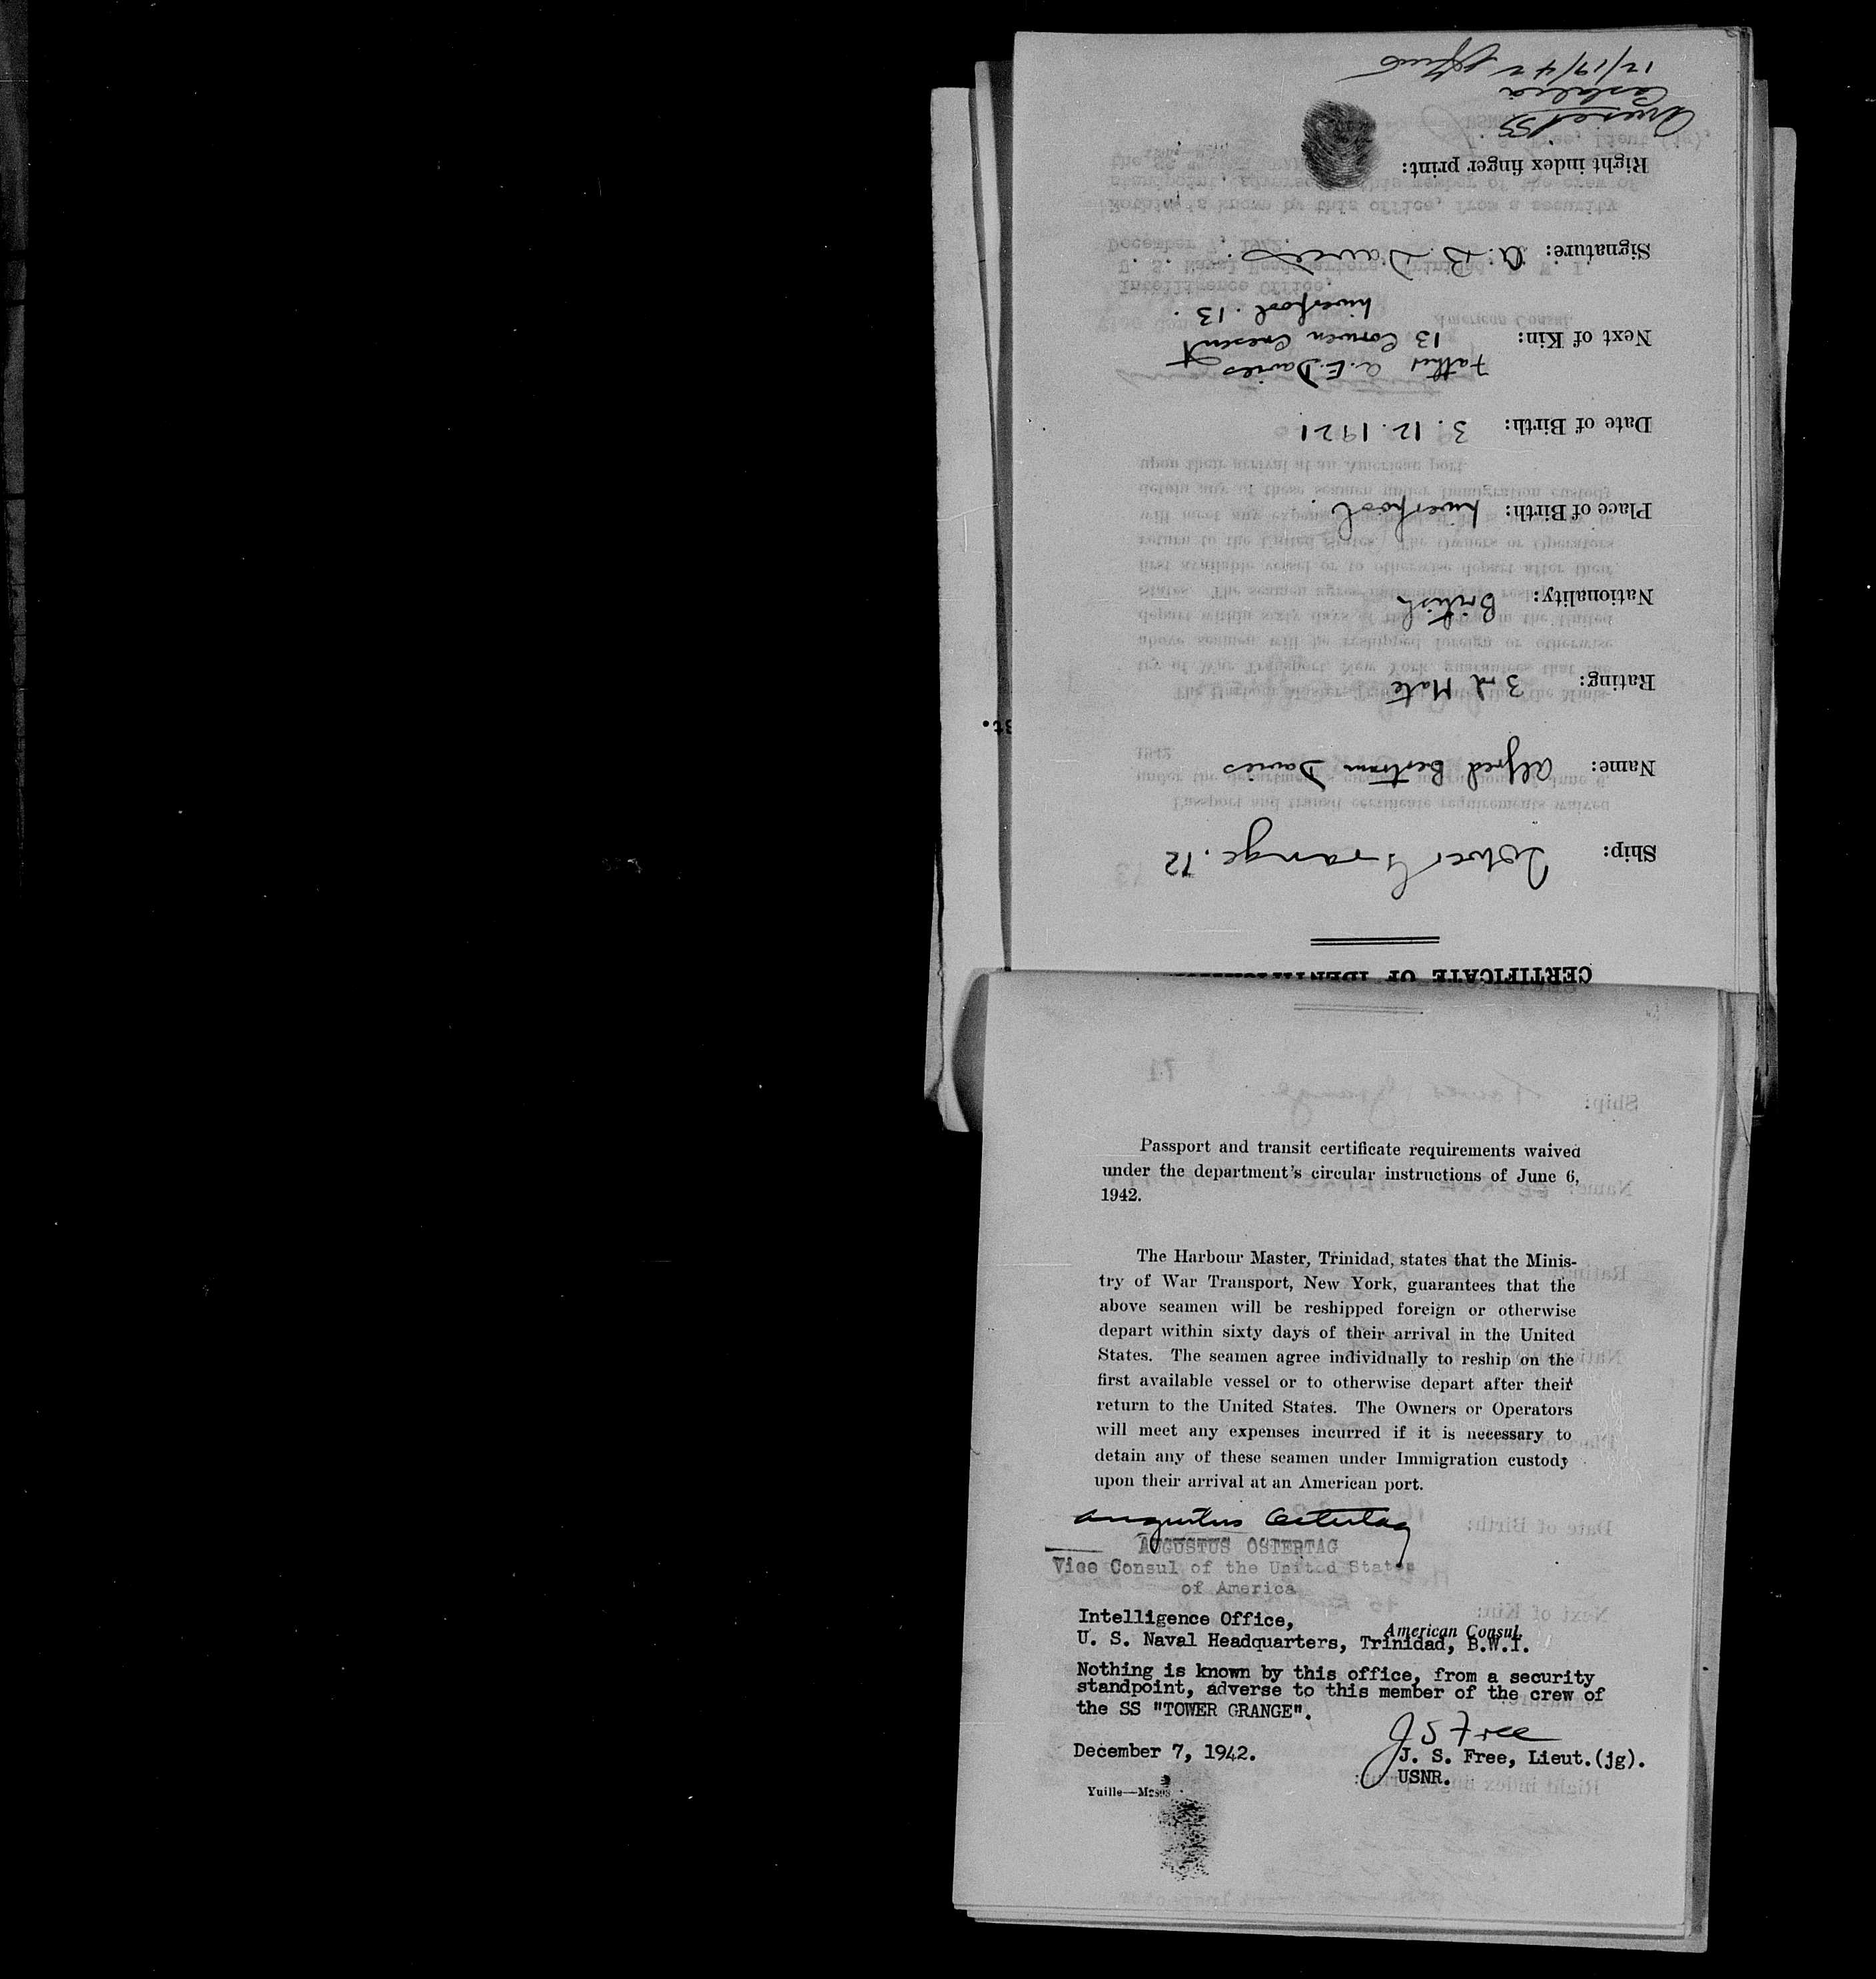 CERTIFICATE OF
Ship: Tower Grange. 12
Name: Alfred Bertram Davies
Rating: 3rd Mate
Nationality: British
Place of Birth: Liverpool.
Date of Birth: 3.12.1921
Father A.E. Davies
Next of Kin: 13 Corwen Crescent
Liverpool. 13.
Signature: A. B. Davies.
Right index finger print:
Castalia
12/19/42
Passport and transit certificate requirements waived
under the department's circular instructions of June 6,
1942.
The Harbour Master, Trinidad, states that the Minis-
try of War Transport, New York, guarantees that the
above seamen will be reshipped foreign or otherwise
depart within sixty days of their arrival in the United
States. The seamen agree individually to reship on the
first available vessel or to otherwise depart after their
return to the United States. The Owners or Operators
will meet any expenses incurred if it is necessary to
detain any of these seamen under Immigration custody
upon their arrival at an American port.
Augustus Ostertag
AUGUSTUS OSTERTAG
Vice Consul of the United States
of America
American Consul.
Intelligence Office,
U. S. Naval Headquarters, Trinidad, B.W.I.
Nothing is known by this office, from a security
standpoint, adverse to this member of the crew of
the SS "TOWER GRANGE".
J S Free
December 7, 1942. J. S. Free, Lieut.(jg).
USNR.